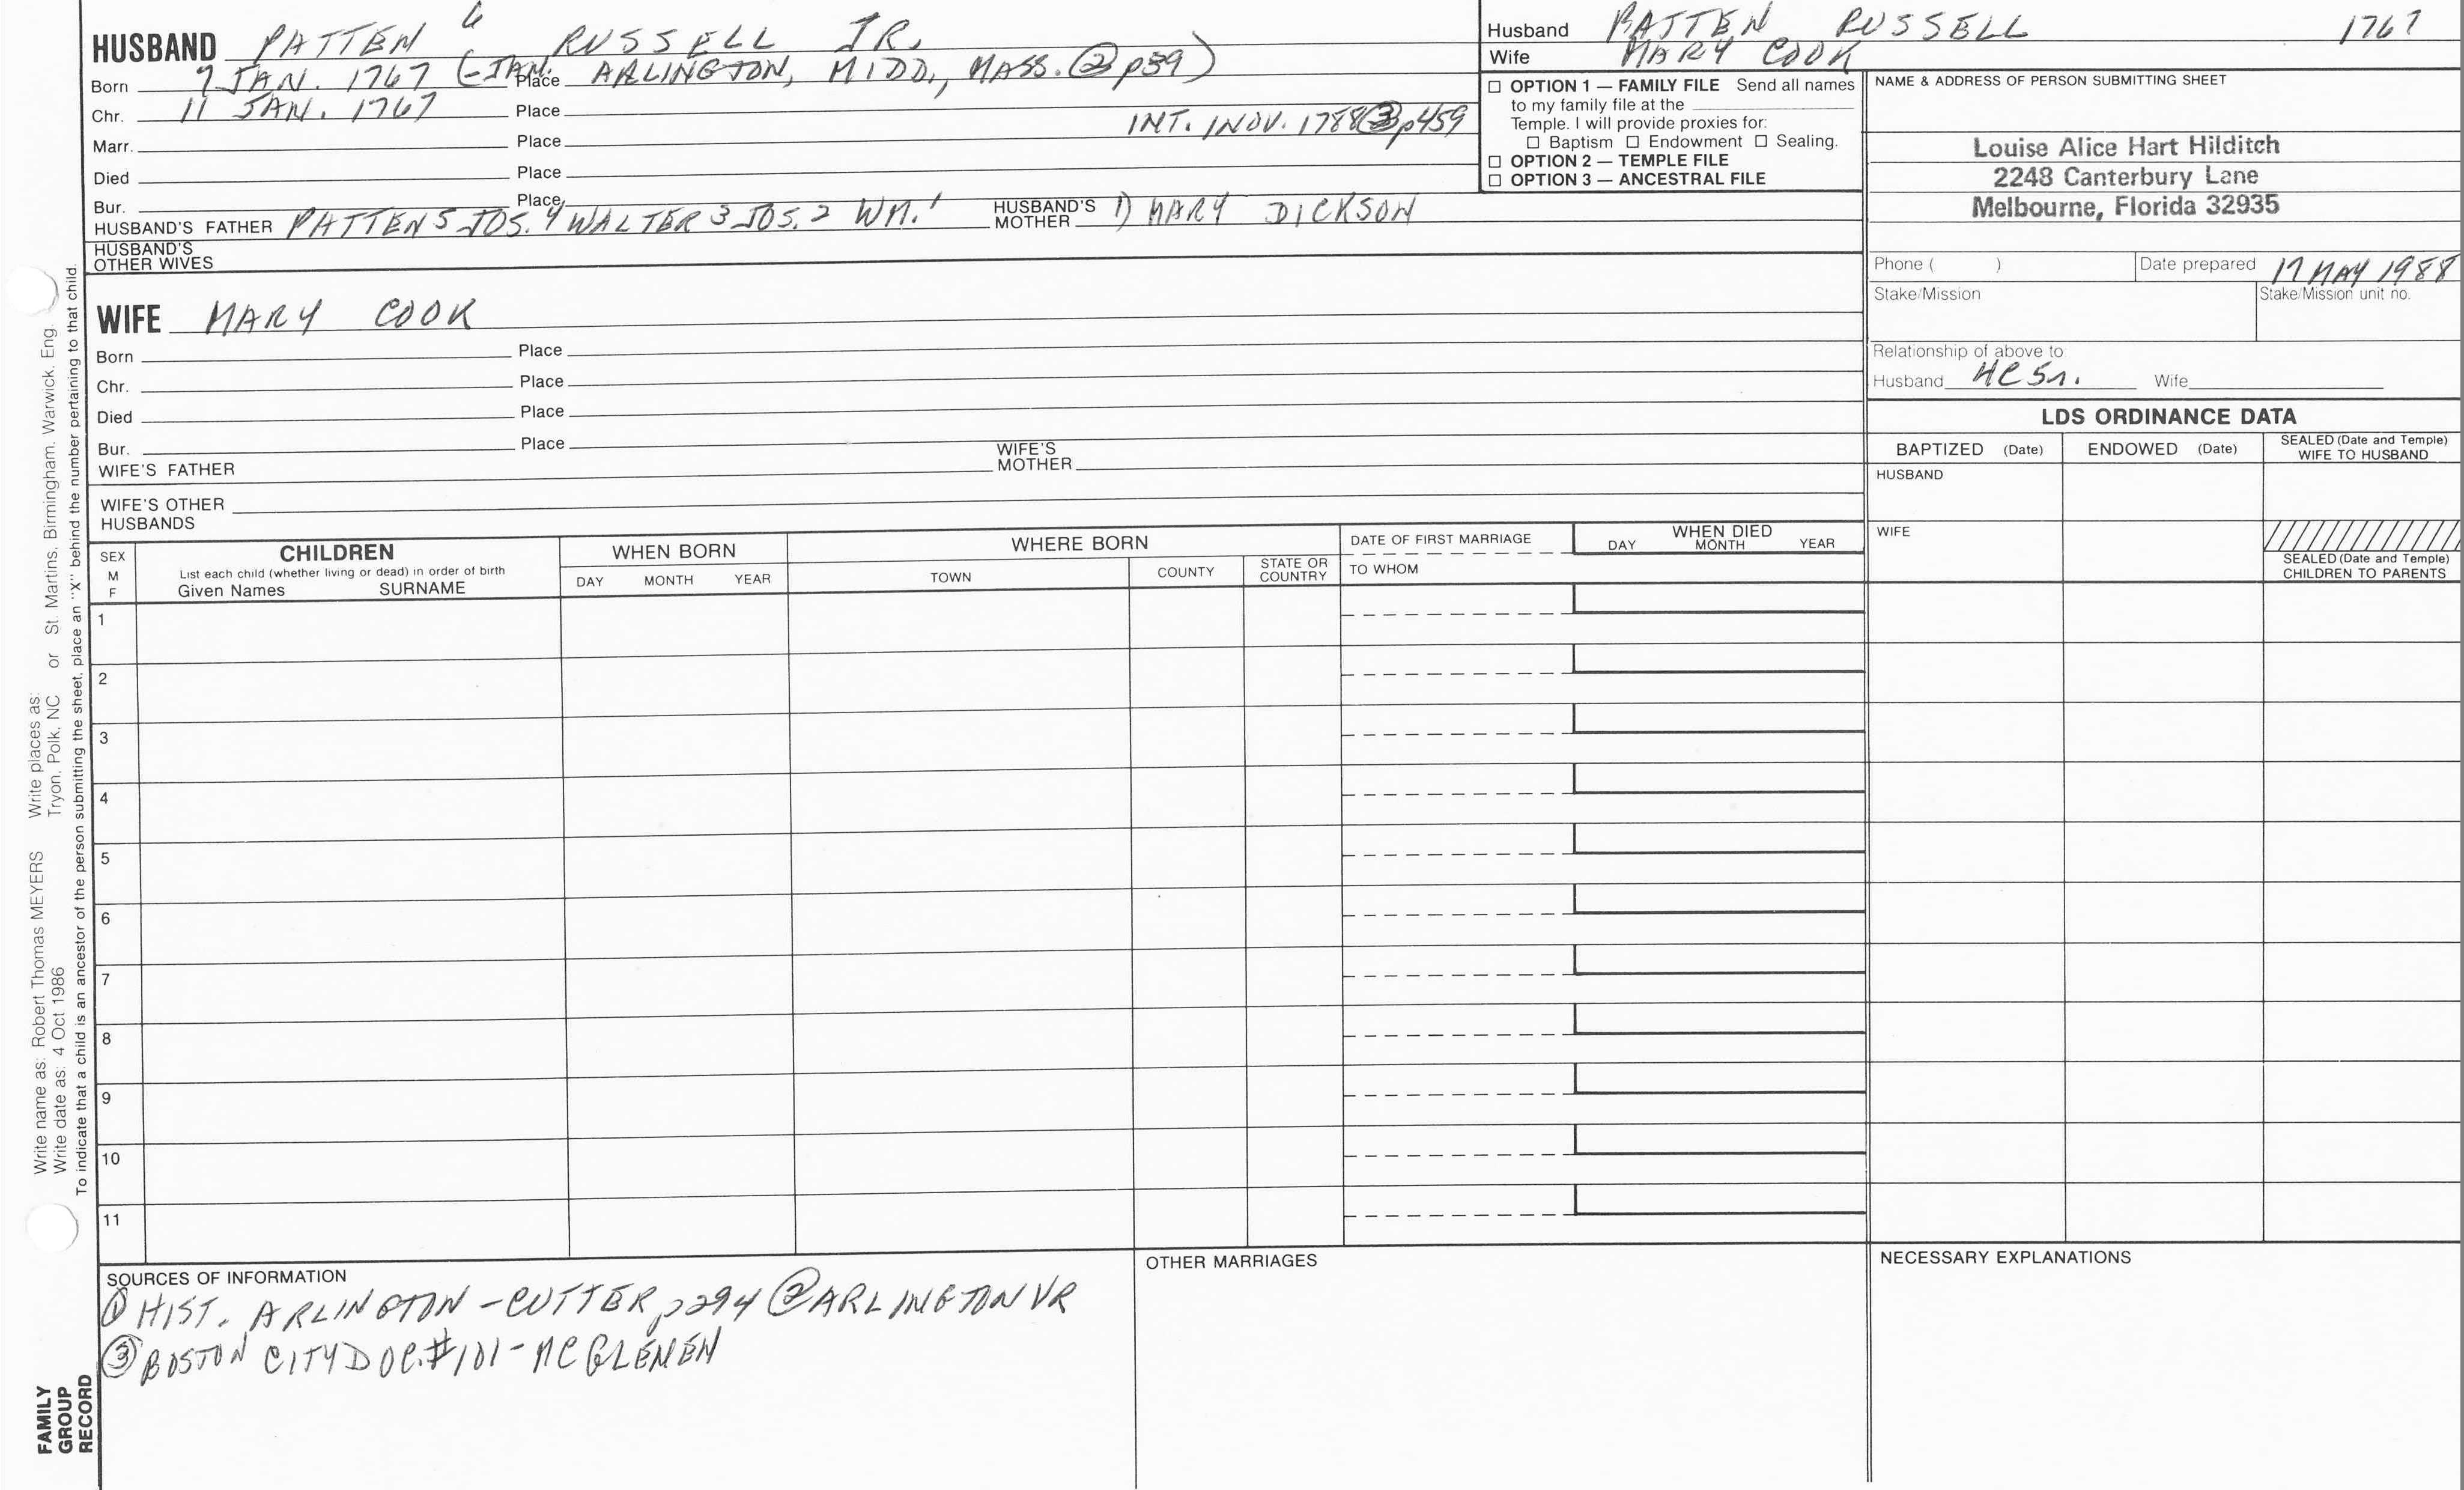 HUSBAND PATTEN 6 RUSSELL JR.
Born 7 JAN. 1767 (-JAN. Place ARLINGTON, MIDD., MASS. (2) p39)
Chr. 11 JAN. 1767 Place
INT. 1 NOV. 1788 (3) p459
Marr. Place
Died Place
Bur. Place
HUSBAND'S FATHER PATTEN 5 JOS. 4 WALTER 3 JOS. 2 WM. 1 HUSBAND'S MOTHER 1) MARY DICKSON
HUSBAND'S
OTHER WIVES
Husband PATTEN RUSSELL 1767
Wife MARY COOK
☐ OPTION 1 — FAMILY FILE Send all names
to my family file at the
Temple. I will provide proxies for:
☐ Baptism ☐ Endowment ☐ Sealing.
☐ OPTION 2 — TEMPLE FILE
☐ OPTION 3 — ANCESTRAL FILE
NAME & ADDRESS OF PERSON SUBMITTING SHEET
Louise Alice Hart Hilditch
2248 Canterbury Lane
Melbourne, Florida 32935
Phone ( ) Date prepared 17 MAY 1988
Stake/Mission Stake/Mission unit no.
Relationship of above to
Husband Wife
WIFE MARY COOK
Born Place
Chr. Place
Died Place
Bur. Place
WIFE'S FATHER WIFE'S MOTHER
WIFE'S OTHER
HUSBANDS
LDS ORDINANCE DATA
BAPTIZED (Date) ENDOWED (Date) SEALED (Date and Temple) WIFE TO HUSBAND
HUSBAND
WIFE
SEALED (Date and Temple)
CHILDREN TO PARENTS
SEX
M
F
CHILDREN
List each child (whether living or dead) in order of birth
Given Names SURNAME
WHEN BORN
DAY MONTH YEAR
WHERE BORN
TOWN COUNTY STATE OR COUNTRY
DATE OF FIRST MARRIAGE
TO WHOM
WHEN DIED
DAY MONTH YEAR
1
2
3
4
5
6
7
8
9
10
11
SOURCES OF INFORMATION
(1) HIST. ARLINGTON - CUTTER p294 (2) ARLINGTON VR
(3) BOSTON CITY DOC. #101 - MCGLENEN
OTHER MARRIAGES
NECESSARY EXPLANATIONS
Write name as: Robert Thomas MEYERS Write places as: St. Martins, Birmingham, Warwick, Eng.
Write date as: 4 Oct 1986 Tryon, Polk, NC or
To indicate that a child is an ancestor of the person submitting the sheet, place an "X" behind the number pertaining to that child.
FAMILY
GROUP
RECORD